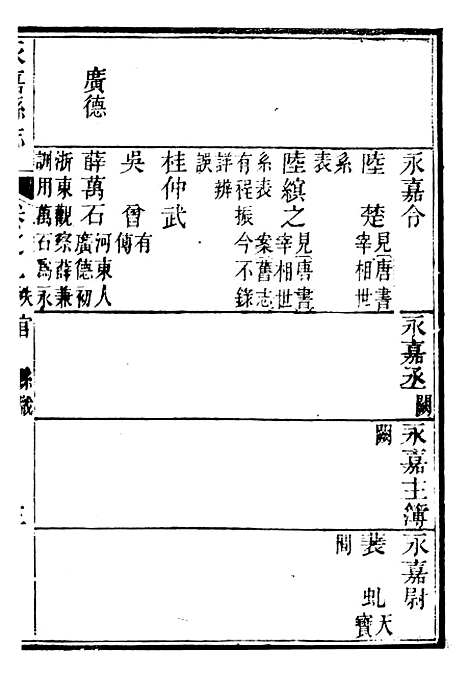 永嘉令
陸楚見唐書宰相世
系
表
陸縝之見唐書宰相世
系表案舊志
有程振今不錄
詳辨
誤
桂仲武
吳曾有傳
廣德
薛萬石河東人廣德初
浙東觀察薛兼
訓用萬石爲永
永嘉丞闕
永嘉主簿
闕
永嘉尉
裴虬天寶
間
永嘉縣志
卷之
秩官
縣職
三